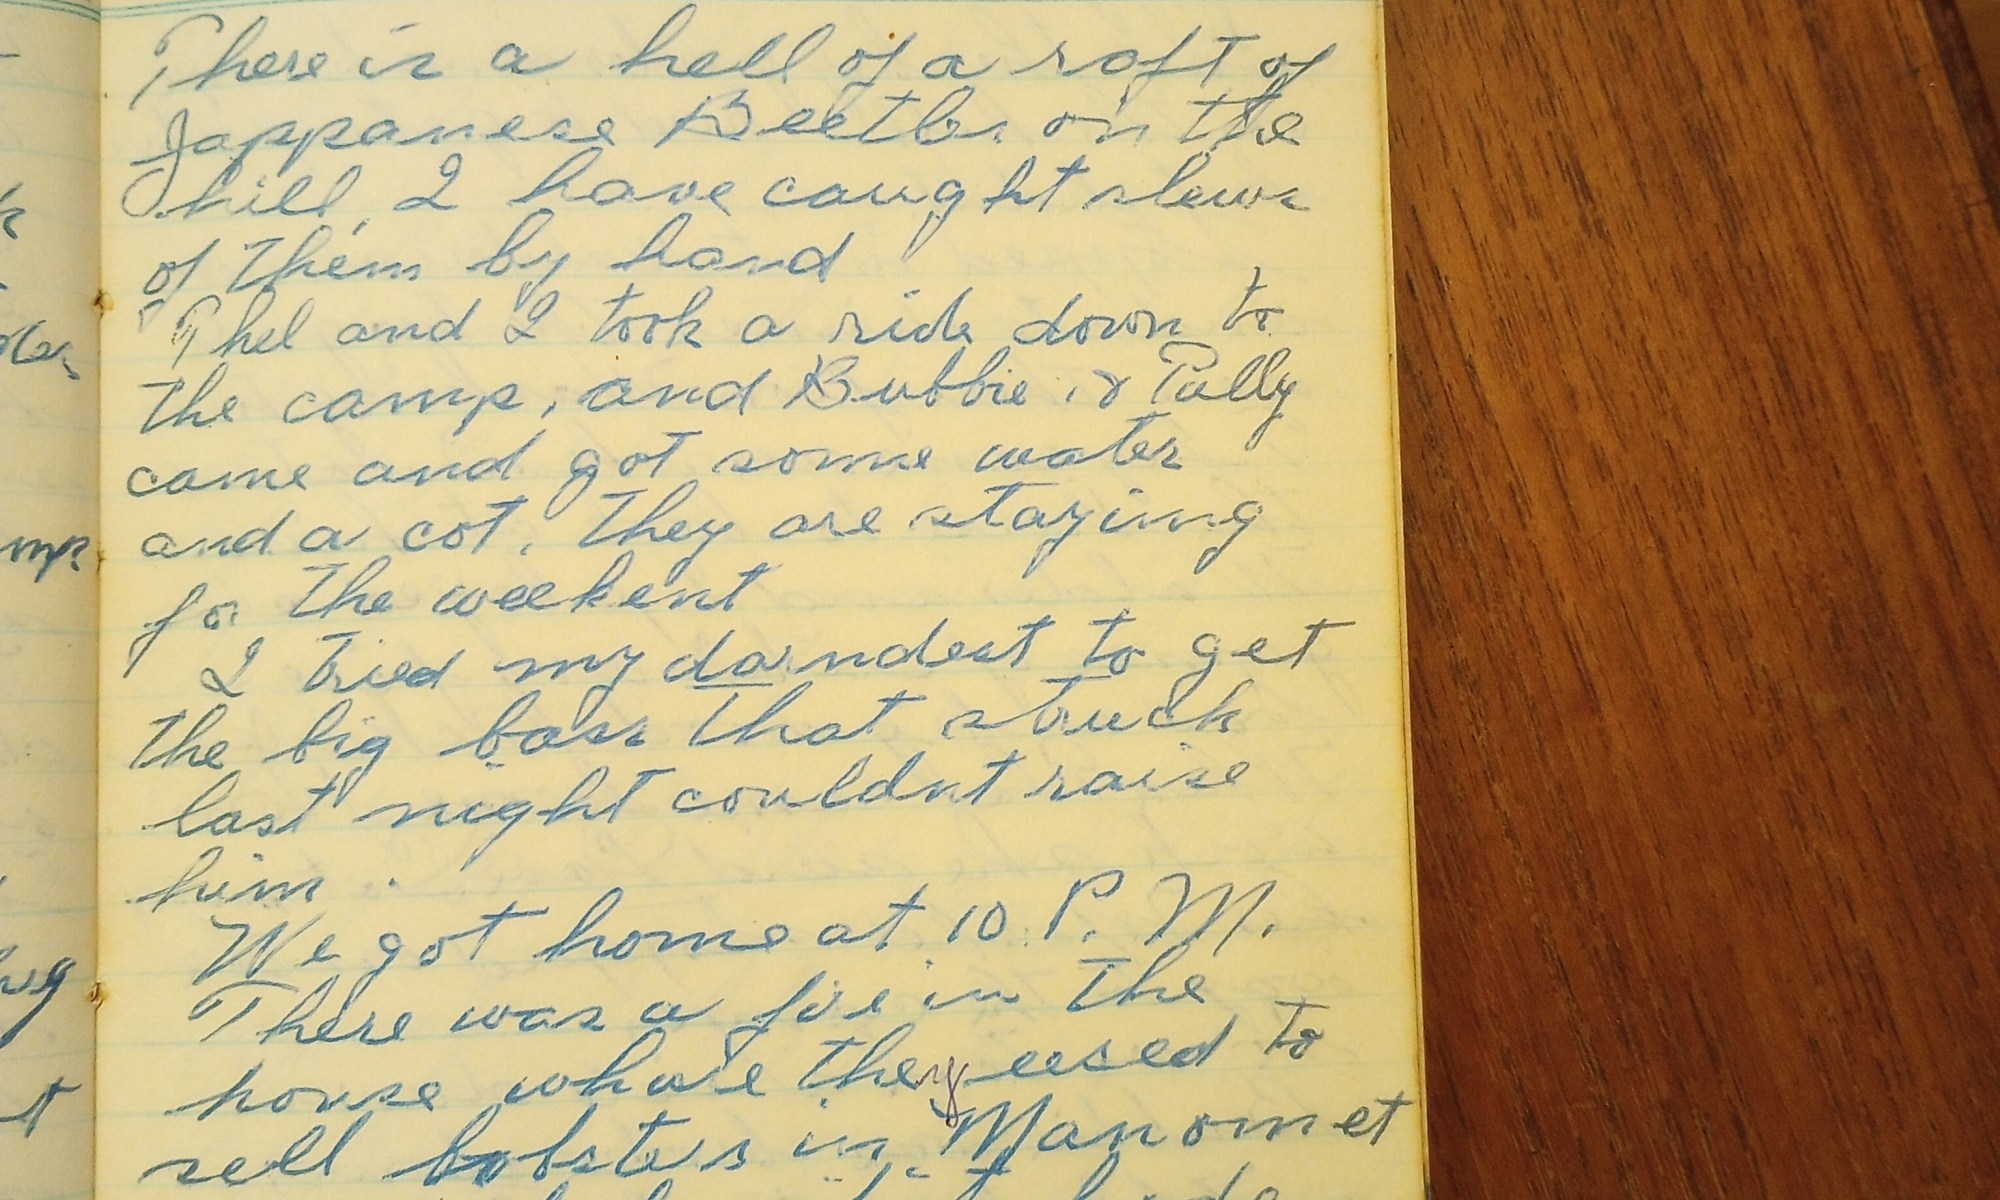 There is a hell of a raft of
Jappanese Beetles on the
hill, I have caught slews
of them by hand
Thel and I took a ride down to
the camp, and Bubbie & Pally
came and got some water
and a cot, They are staying
for the weekent
I tried my darndest to get
the big bass that struck
last night couldnt raise
him.
We got home at 10 P. M.
There was a fire in the
house whare they used to
sell lobsters in Manomet